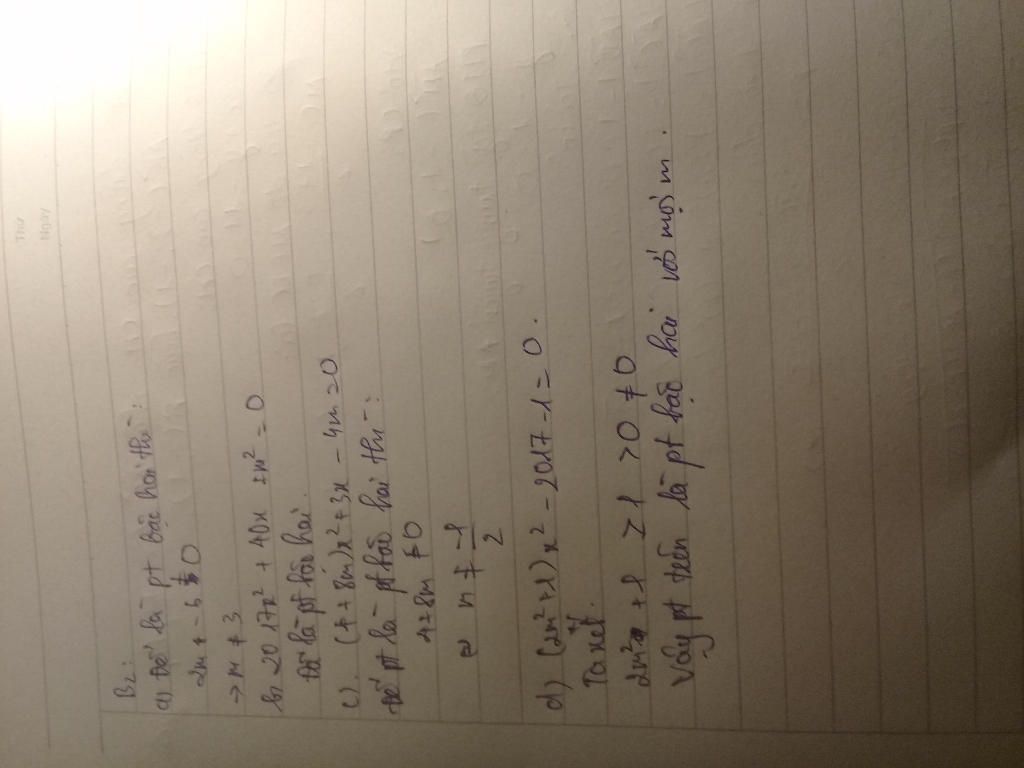 Thứ
Ngày
B2:
a) Để là pt bậc hai thì:
2m - 6 ≠ 0
→ m ≠ 3
b. 2017x² + 40x + m² = 0
là pt bậc hai.
c) (4 + 8m)x² + 3x - 4m = 0
Để pt là pt bậc hai thì:
4 + 8m ≠ 0
m ≠ -1/2
d) (2m² + 1)x² - 2017 - 1 = 0.
Ta xét.
2m² + 1 ≥ 1 > 0 ≠ 0
Vậy pt trên là pt bậc hai với mọi m.